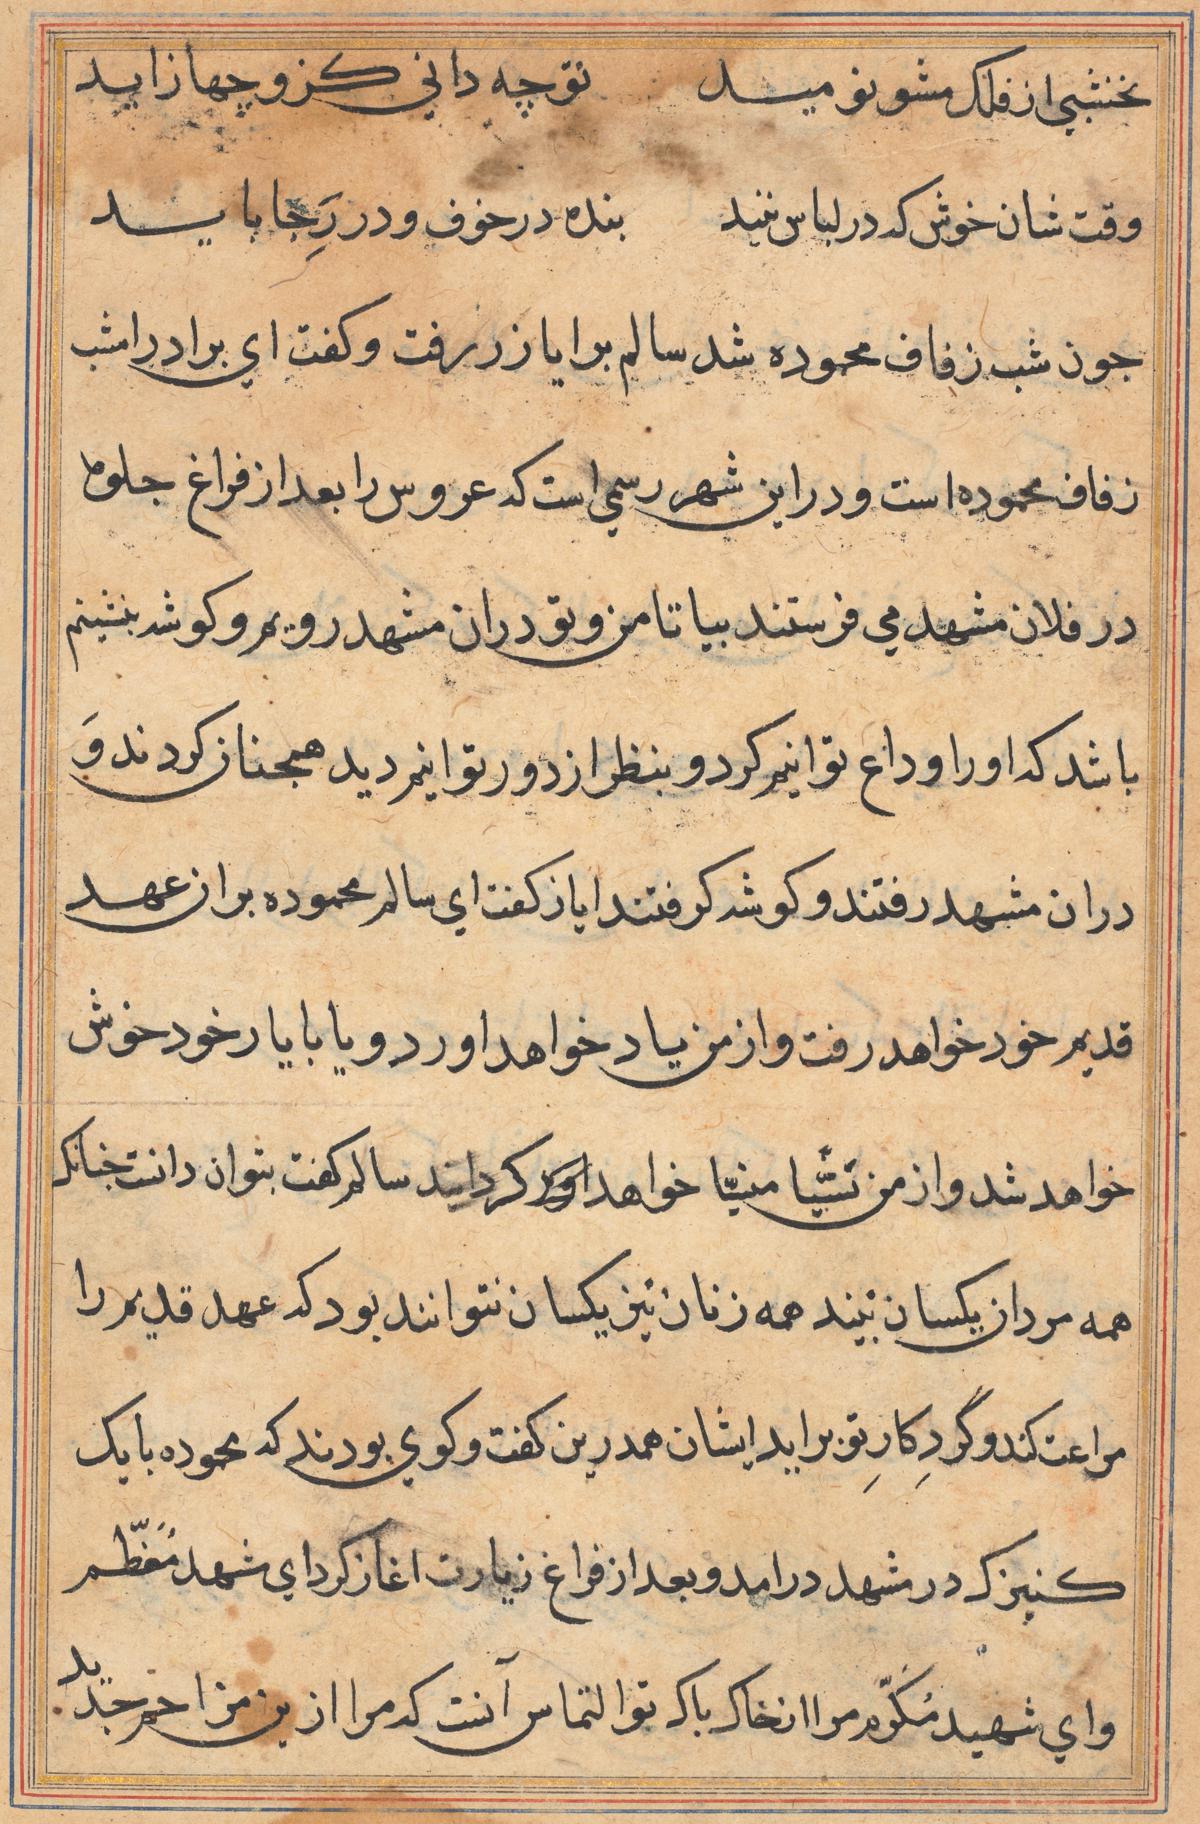 نخشبی از فلک مشو نومید تو چه دانی کز و چها زاید
وقت شان خوش که در لباس نیند بنده در خوف و در رَجا باید
جون شب زفاف محموده شد سالم بر ایاز رفت و کفت ای برادر امشب
زفاف محموده است و در این شهر رسمی است که عروس را بعد از فراغ جلوه
در فلان مشهد می فرستند بیا تا من و تو در ان مشهد رویم و کوشه بنشینم
باشد که او را وداع توانیم کرد و بنظر از دور توانیم دید همجنان کردند وَ
در ان مشهد رفتند و کوشه کرفتند ایاز کفت ای سالم محموده بر ان عهد
قدیم خود خواهد رفت و از من یاد خواهد اورد و یا با یار خود خوش
خواهد شد و از من نَسْیًا منسیًا خواهد کردانید سالم کفت بتوان دانت جنانک
همه مردان یکسان نیند همه زنان نیز یکسان نتوانند بود که عهد قدیم را
مراعت کند و گردِ کارِ تو براید ایشان همدرین کفت و کوی بودند که محموده با یک
کنیزک در مشهد درامد و بعد از فراغ زیارت اغاز کرد ای مشهد مُعَظّم
و ای شهید مُکَرّم مرا از خاک باک تو التماس آنست که مرا از ین مزاحم جدید